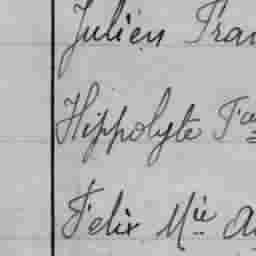 Julien Fran
Hippolyte F
Felix Mie A